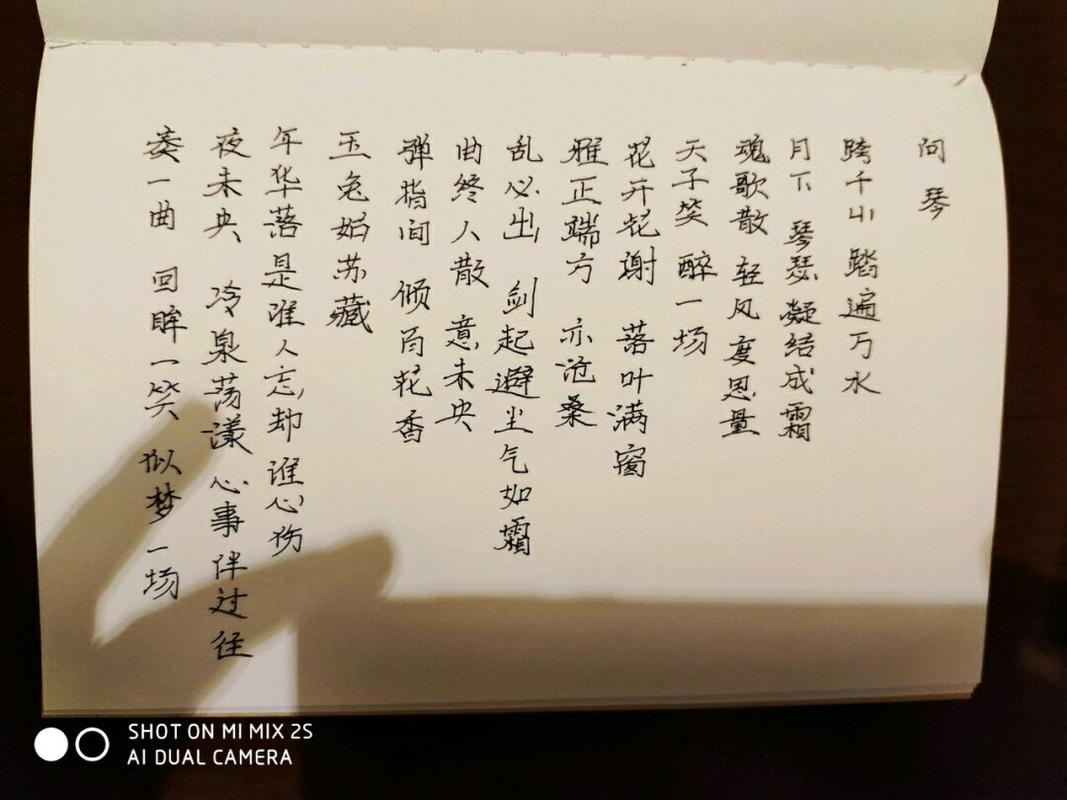 问琴
跨千山 踏遍万水
月下 琴瑟凝结成霜
魂歌散 轻风度思量
天子笑 醉一场
花开花谢 落叶满窗
雅正端方 亦沧桑
乱必出 剑起避尘气如霜
曲终人散 意未央
弹指间 倾百花香
玉兔始苏藏
年华落是谁人忘却谁心伤
夜未央 冷泉荡漾 心事伴过往
奏一曲 回眸一笑 似梦一场
SHOT ON MI MIX 2S
AI DUAL CAMERA